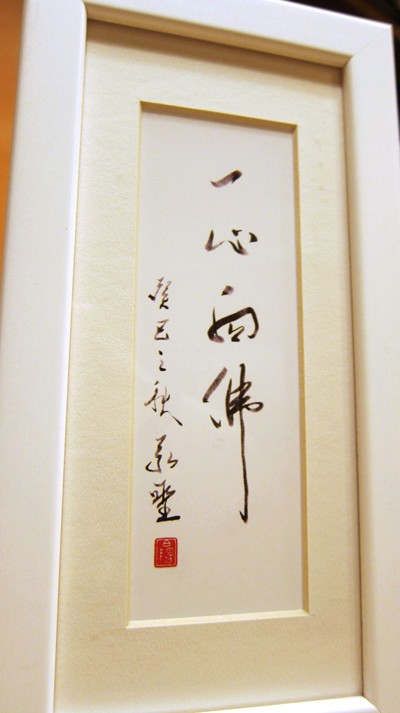 一心向佛
癸巳之秋